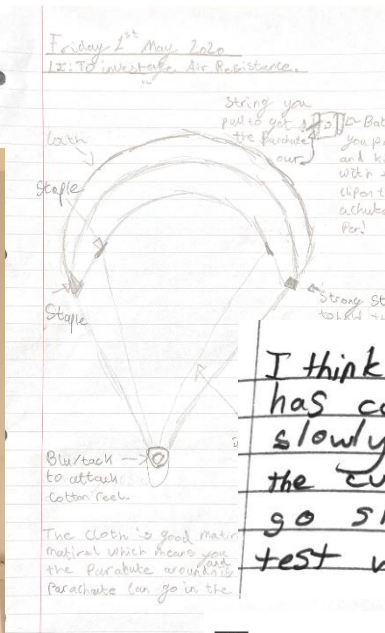 Friday 1st May 2020
LI: To investage Air Resistance.
String you
pull to get
the Parachute
our
Bat
you p
and k
with
clipon t
achute
Per!
Cloth
Staple
Staple
Strong St
to hold
Blu/tack
to attach
cotton reel.
The Cloth is good
matiral which means you
the Parachute around
and
Parachute can go in the
I think
has co
slowly
the
go s
test